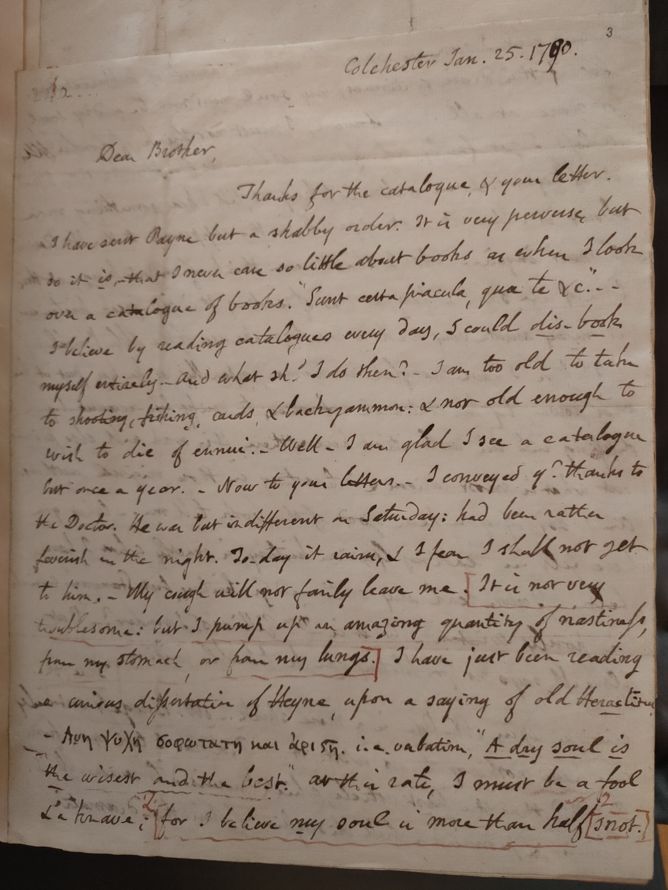 3
Colchester Jan. 25. 1790.
Dear Brother,
Thanks for the catalogue, & your letter.
I have sent Payne but a shabby order. It is very perverse, but
so it is, that I never care so little about books as when I look
over a catalogue of books. "Sunt certa piacula, quæ te &c." - -
I believe by reading catalogues every day, I could dis-book
myself entirely - And what shd. I do then? - I am too old to take
to shooting, fishing, cards, & backgammon: & not old enough to
wish to die of ennui. - Well - I am glad I see a catalogue
but once a year. - Now to your letters. - I conveyed yr. thanks to
the Doctor. He was but indifferent on Saturday: had been rather
feverish in the night. To-day it rains, & I fear I shall not get
to him. - My cough will not fairly leave me. [It is not very
troublesome: but I pump up an amazing quantity of nastiness,
from my stomach, or from my lungs.] I have just been reading
a curious dissertation of Heyne, upon a saying of old Heraclitus
- Αυη ψυχη σοφωτατη και άριςη. i.e. verbatim, "A dry soul is
the wisest and the best." at this rate, I must be a fool
& a knave; [for I believe my soul is more than half [snot.]